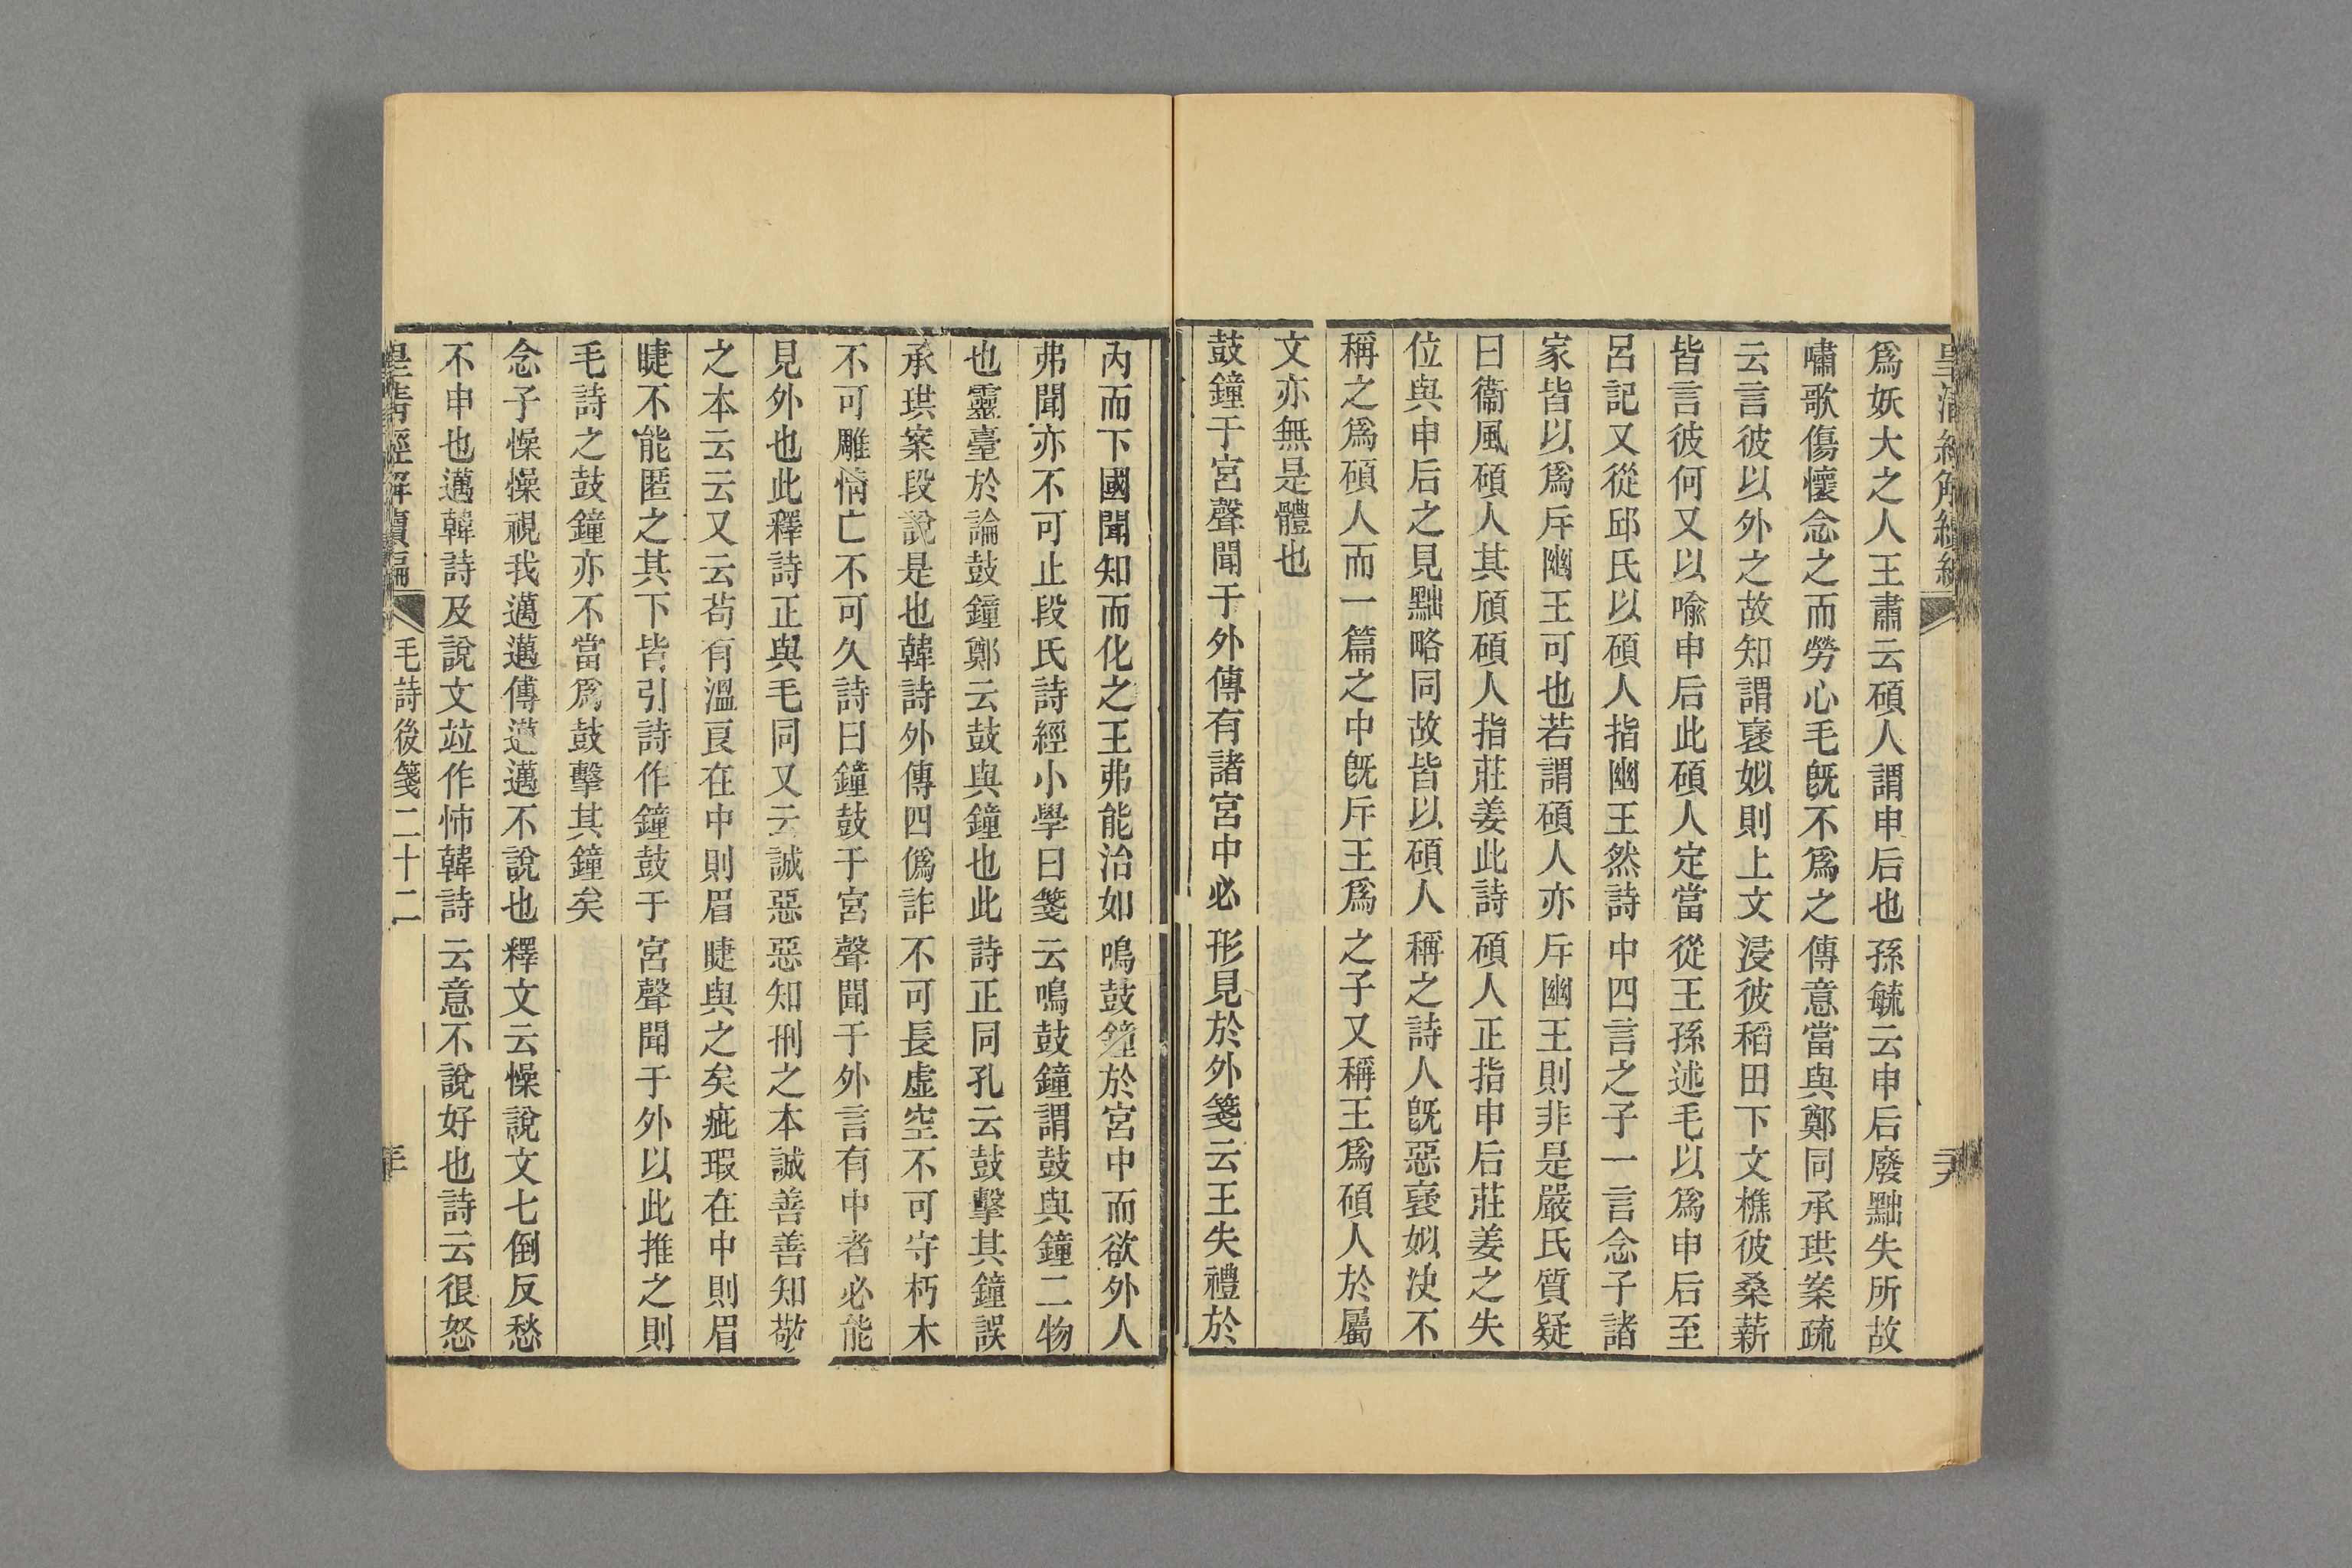 皇清經解續編
爲妖大之人王肅云碩人謂申后也孫毓云申后廢黜失所故
嘯歌傷懷念之而勞心毛旣不爲之傳意當與鄭同承珙案疏
云言彼以外之故知謂襃姒則上文浸彼稻田下文樵彼桑薪
皆言彼何又以喻申后此碩人定當從王孫述毛以爲申后至
呂記又從邱氏以碩人指幽王然詩中四言之子一言念子諸
家皆以爲斥幽王可也若謂碩人亦斥幽王則非是嚴氏質疑
曰衞風碩人其頎碩人指莊姜此詩碩人正指申后莊姜之失
位與申后之見黜略同故皆以碩人稱之詩人旣惡襃姒決不
稱之爲碩人而一篇之中旣斥王爲之子又稱王爲碩人於屬
文亦無是體也
鼓鐘于宮聲聞于外傳有諸宮中必形見於外箋云王失禮於
內而下國聞知而化之王弗能治如鳴鼓鐘於宮中而欲外人
弗聞亦不可止段氏詩經小學曰箋云鳴鼓鐘謂鼓與鐘二物
也靈臺於論鼓鐘鄭云鼓與鐘也此詩正同孔云鼓擊其鐘誤
承珙案段說是也韓詩外傳四僞詐不可長虛空不可守朽木
不可雕情亡不可久詩曰鐘鼓于宮聲聞于外言有中者必能
見外也此釋詩正與毛同又云誠惡惡知刑之本誠善善知敬
之本云云又云苟有溫良在中則眉睫與之矣疵瑕在中則眉
睫不能匿之其下皆引詩作鐘鼓于宮聲聞于外以此推之則
毛詩之鼓鐘亦不當爲鼓擊其鐘矣
念子懆懆視我邁邁傳邁邁不說也釋文云懆說文七倒反愁
不申也邁韓詩及說文竝作怖韓詩云意不說好也詩云很怒
皇淸經解續編
毛詩後箋二十二